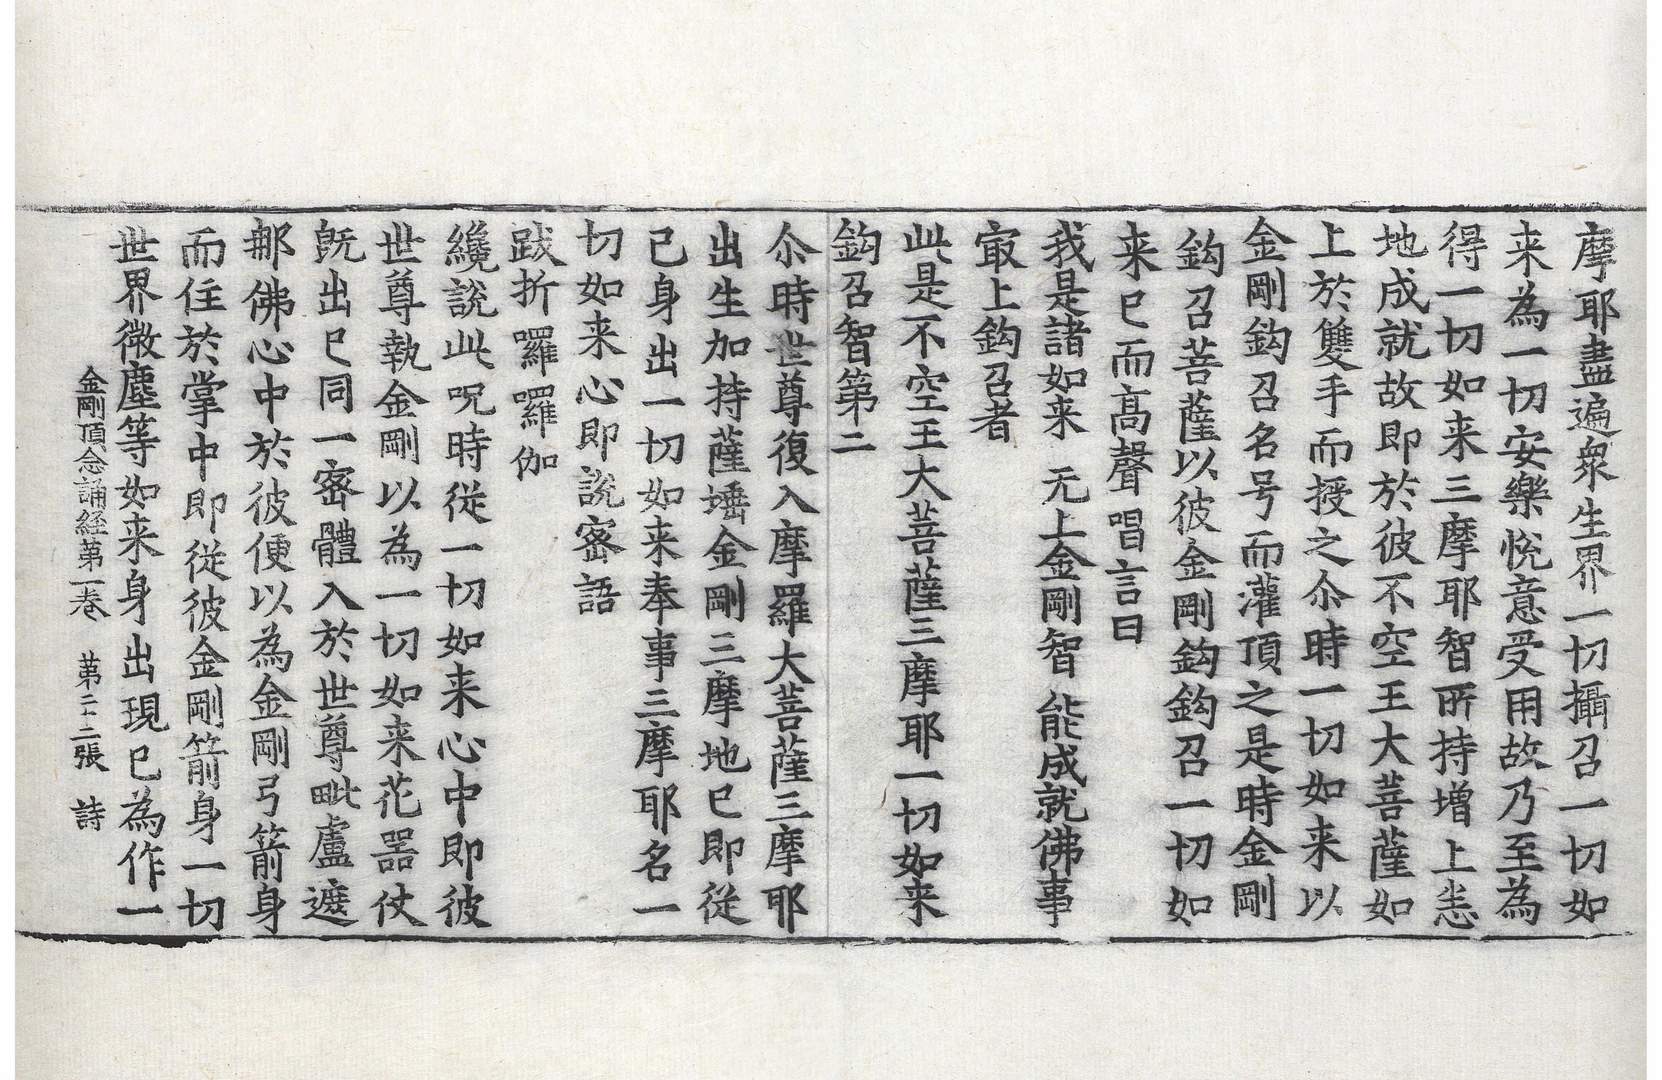 摩耶盡遍衆生界一切攝召一切如
来為一切安樂悅意受用故乃至為
得一切如来三摩耶智所持增上悉
地成就故即於彼不空王大菩薩如
上於雙手而授之尒時一切如来以
金剛鈎召名号而灌頂之是時金剛
鈎召菩薩以彼金剛鈎鈎召一切如
来已而高聲唱言曰
我是諸如来 无上金剛智 能成就佛事
㝡上鈎召者
此是不空王大菩薩三摩耶一切如来
鈎召智第二
尒時世尊復入摩羅大菩薩三摩耶
出生加持薩埵金剛三摩地已即從
己身出一切如来奉事三摩耶名一
切如来心即説密語
跋折囉囉伽
纔說此呪時從一切如来心中即彼
世尊執金剛以為一切如来花器仗
旣出已同一密體入於世尊毗盧遮
那佛心中於彼便以為金剛弓箭身
而住於掌中即從彼金剛箭身一切
世界微塵等如来身出現已為作一
金剛頂念誦経苐一卷 苐二十二張 詩